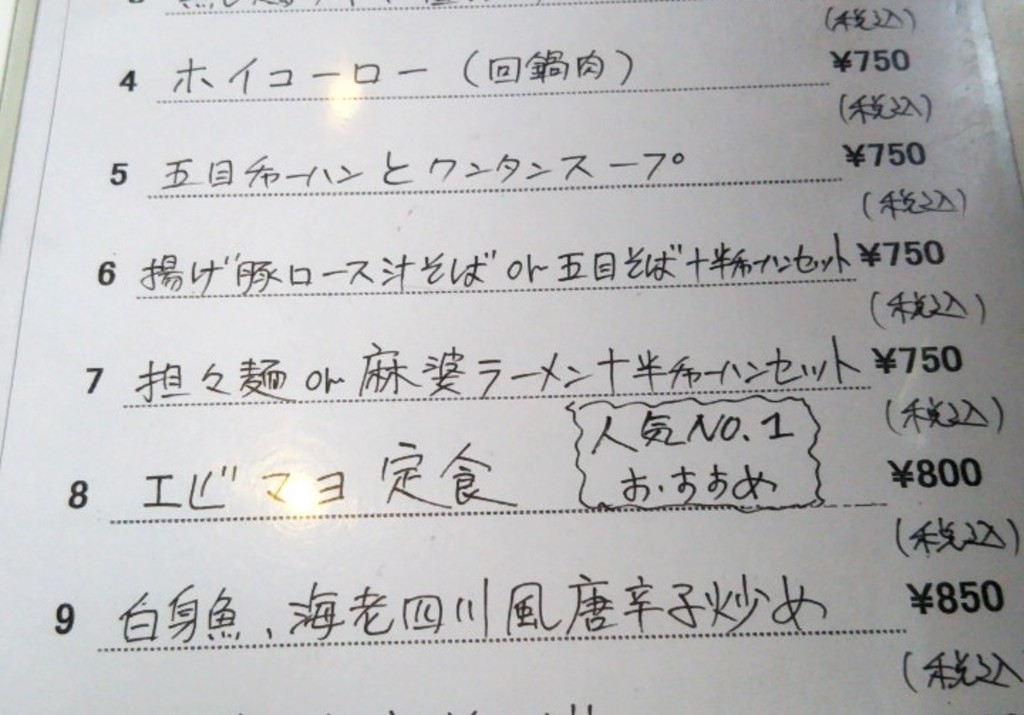 (税込)
4 ホイコーロー (回鍋肉) ¥750
(税込)
5 五目チャーハンとワンタンスープ ¥750
(税込)
6 揚げ豚ロース汁そば or 五目そば+半チャーハンセット ¥750
(税込)
7 担々麺 or 麻婆ラーメン+半チャーハンセット ¥750
(税込)
人気NO.1
8 エビマヨ定食 おすすめ ¥800
(税込)
9 白身魚、海老四川風唐辛子炒め ¥850
(税込)